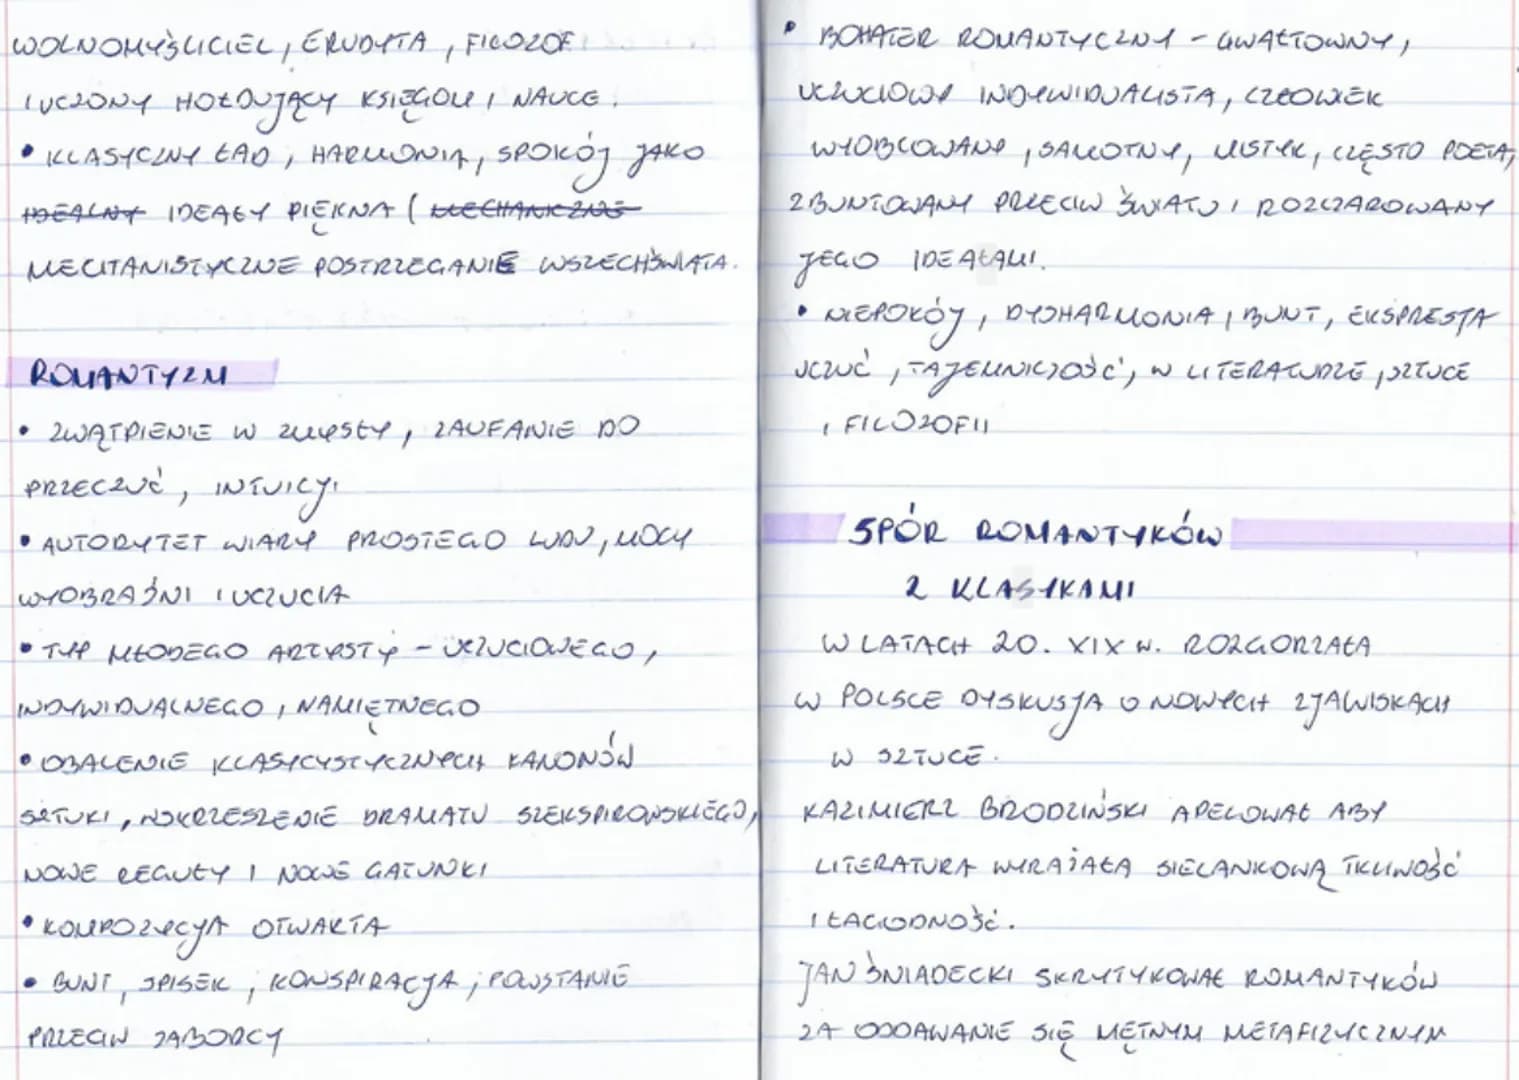 WOLNOMYŚLICIEL, ERUDYTA, FILOZOF
I UCZONY HOŁDUJĄCY KSIĘGOM I NAUCE.
• KLASYCZNY ŁAD, HARMONIA, SPOKÓJ JAKO
IDEALNY IDEAŁY PIĘKNA ( MECHANICZNE
MECHANISTYCZNE POSTRZEGANIE WSZECHŚWIATA.
ROMANTYZM
• ZWĄTPIENIE W ZMYSŁY, ZAUFANIE DO
PRZECZUĆ, INTUICJI
• AUTORYTET WIARY PROSTEGO LUDU, MOCY
WYOBRAŹNI I UCZUCIA
• TYP MŁODEGO ARTYSTY – UCZUCIOWEGO,
INDYWIDUALNEGO, NAMIĘTNEGO
• OBALENIE KLASYCYSTYCZNYCH KANONÓW
SZTUKI, WSKRZESZENIE DRAMATU SZEKSPIROWSKIEGO,
NOWE REGUŁY I NOWE GATUNKI
• KOMPOZYCYJA OTWARTA
• BUNT, SPISEK, KONSPIRACJA, POWSTANIE
PRZECIW ZABORCY
• BOHATER ROMANTYCZNY – GWAŁTOWNY,
UCZUCIOWY INDYWIDUALISTA, CZŁOWIEK
WYOBCOWANY, SAMOTNY, MISTYK, CZĘSTO POETA,
ZBUNTOWANY PRZECIW ŚWIATU I ROZCZAROWANY
JEGO IDEAŁAMI.
• NIEPOKÓJ, DYSHARMONIA, BUNT, EKSPRESJA
UCZUĆ, TAJEMNICZOŚĆ, W LITERATURZE, SZTUCE
I FILOZOFII
SPÓR ROMANTYKÓW
Z KLASYKAMI
W LATACH 20. XIX W. ROZGORZAŁA
W POLSCE DYSKUSJA O NOWYCH ZJAWISKACH
W SZTUCE.
KAZIMIERZ BRODZIŃSKI APELOWAŁ ABY
LITERATURA WYRAŻAŁA SIELANKOWĄ TKLIWOŚĆ
I ŁAGODNOŚĆ.
JAN ŚNIADECKI SKRYTYKOWAŁ ROMANTYKÓW
ZA ODDAWANIE SIĘ MĘTNYM METAFIZYCZNYM